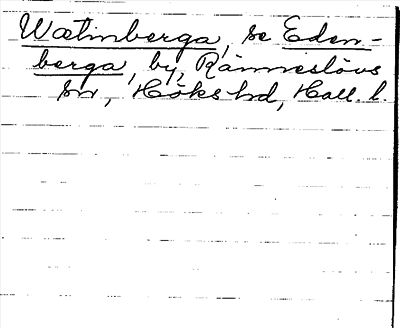 Watnberga, se Eden-
berga, by, Ränneslövs
sn, Höks hd, Hall. l.